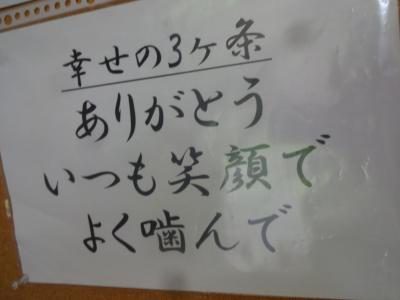 幸せの3ヶ条
ありがとう
いつも笑顔で
よく噛んで